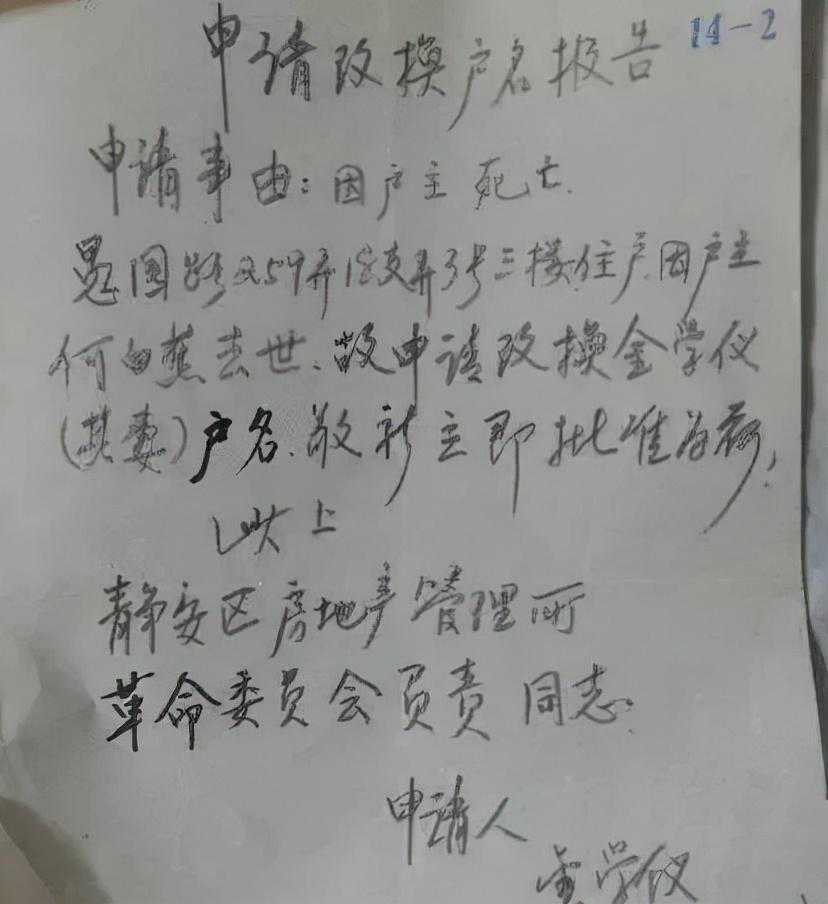 申请改换户名报告 14-2
申请事由：因户主死亡.
愚园路259弄18支弄3号三楼住户.因户主
何白蕉去世.故申请改换金学仪
(其妻)户名.敬祈立即批准为荷!
此上
静安区房地产管理所
革命委员会负责同志.
申请人
金学仪